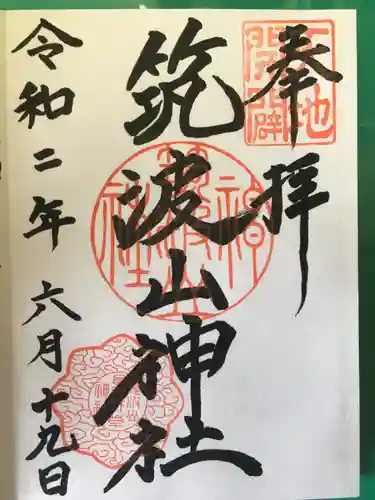 奉拝
天地開闢
筑波山神社
令和二年六月十九日